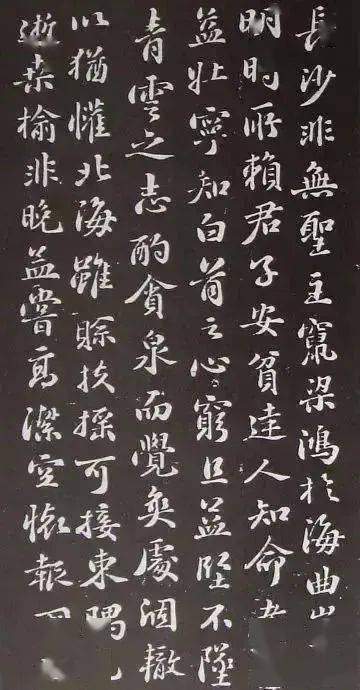 長沙非無聖主竄梁鴻於海曲
明時所賴君子安貧達人知命
益壯寧知白首之心窮且益堅不墜
青雲之志酌貪泉而覺爽處涸轍
以猶懽北海雖賒扶搖可接東隅
逝桑榆非晚孟嘗高潔空懷報